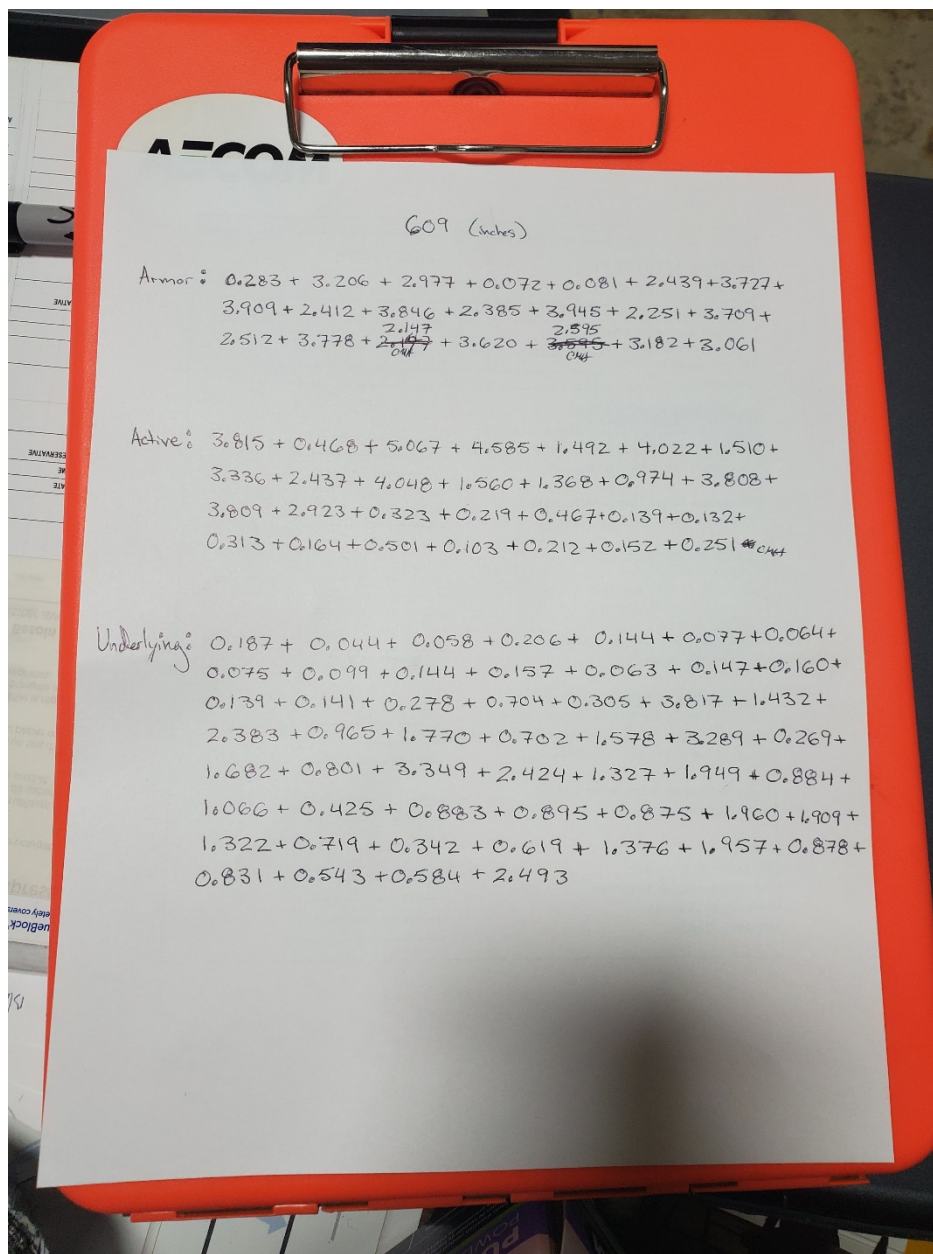 AECOM
609 (inches)
Armor: 0.283 + 3.206 + 2.977 + 0.072 + 0.081 + 2.439 + 3.727 +
3.909 + 2.412 + 3.846 + 2.385 + 3.945 + 2.251 + 3.709 +
2.147 2.595
2.512 + 3.778 + + 3.620 + 3.595 + 3.182 + 3.061
CMH CMH
Active: 3.815 + 0.468 + 5.067 + 4.585 + 1.492 + 4.022 + 1.510 +
3.336 + 2.437 + 4.048 + 1.560 + 1.368 + 0.974 + 3.808 +
3.809 + 2.923 + 0.323 + 0.219 + 0.467 + 0.139 + 0.132 +
0.313 + 0.164 + 0.501 + 0.103 + 0.212 + 0.152 + 0.251 CMH
Underlying: 0.187 + 0.044 + 0.058 + 0.206 + 0.144 + 0.077 + 0.064 +
0.075 + 0.099 + 0.144 + 0.157 + 0.063 + 0.147 + 0.160 +
0.139 + 0.141 + 0.278 + 0.704 + 0.305 + 3.817 + 1.432 +
2.383 + 0.965 + 1.770 + 0.702 + 1.578 + 3.289 + 0.269 +
1.682 + 0.801 + 3.349 + 2.424 + 1.327 + 1.949 + 0.884 +
1.066 + 0.425 + 0.883 + 0.895 + 0.875 + 1.960 + 1.909 +
1.322 + 0.719 + 0.342 + 0.619 + 1.376 + 1.957 + 0.878 +
0.831 + 0.543 + 0.584 + 2.493